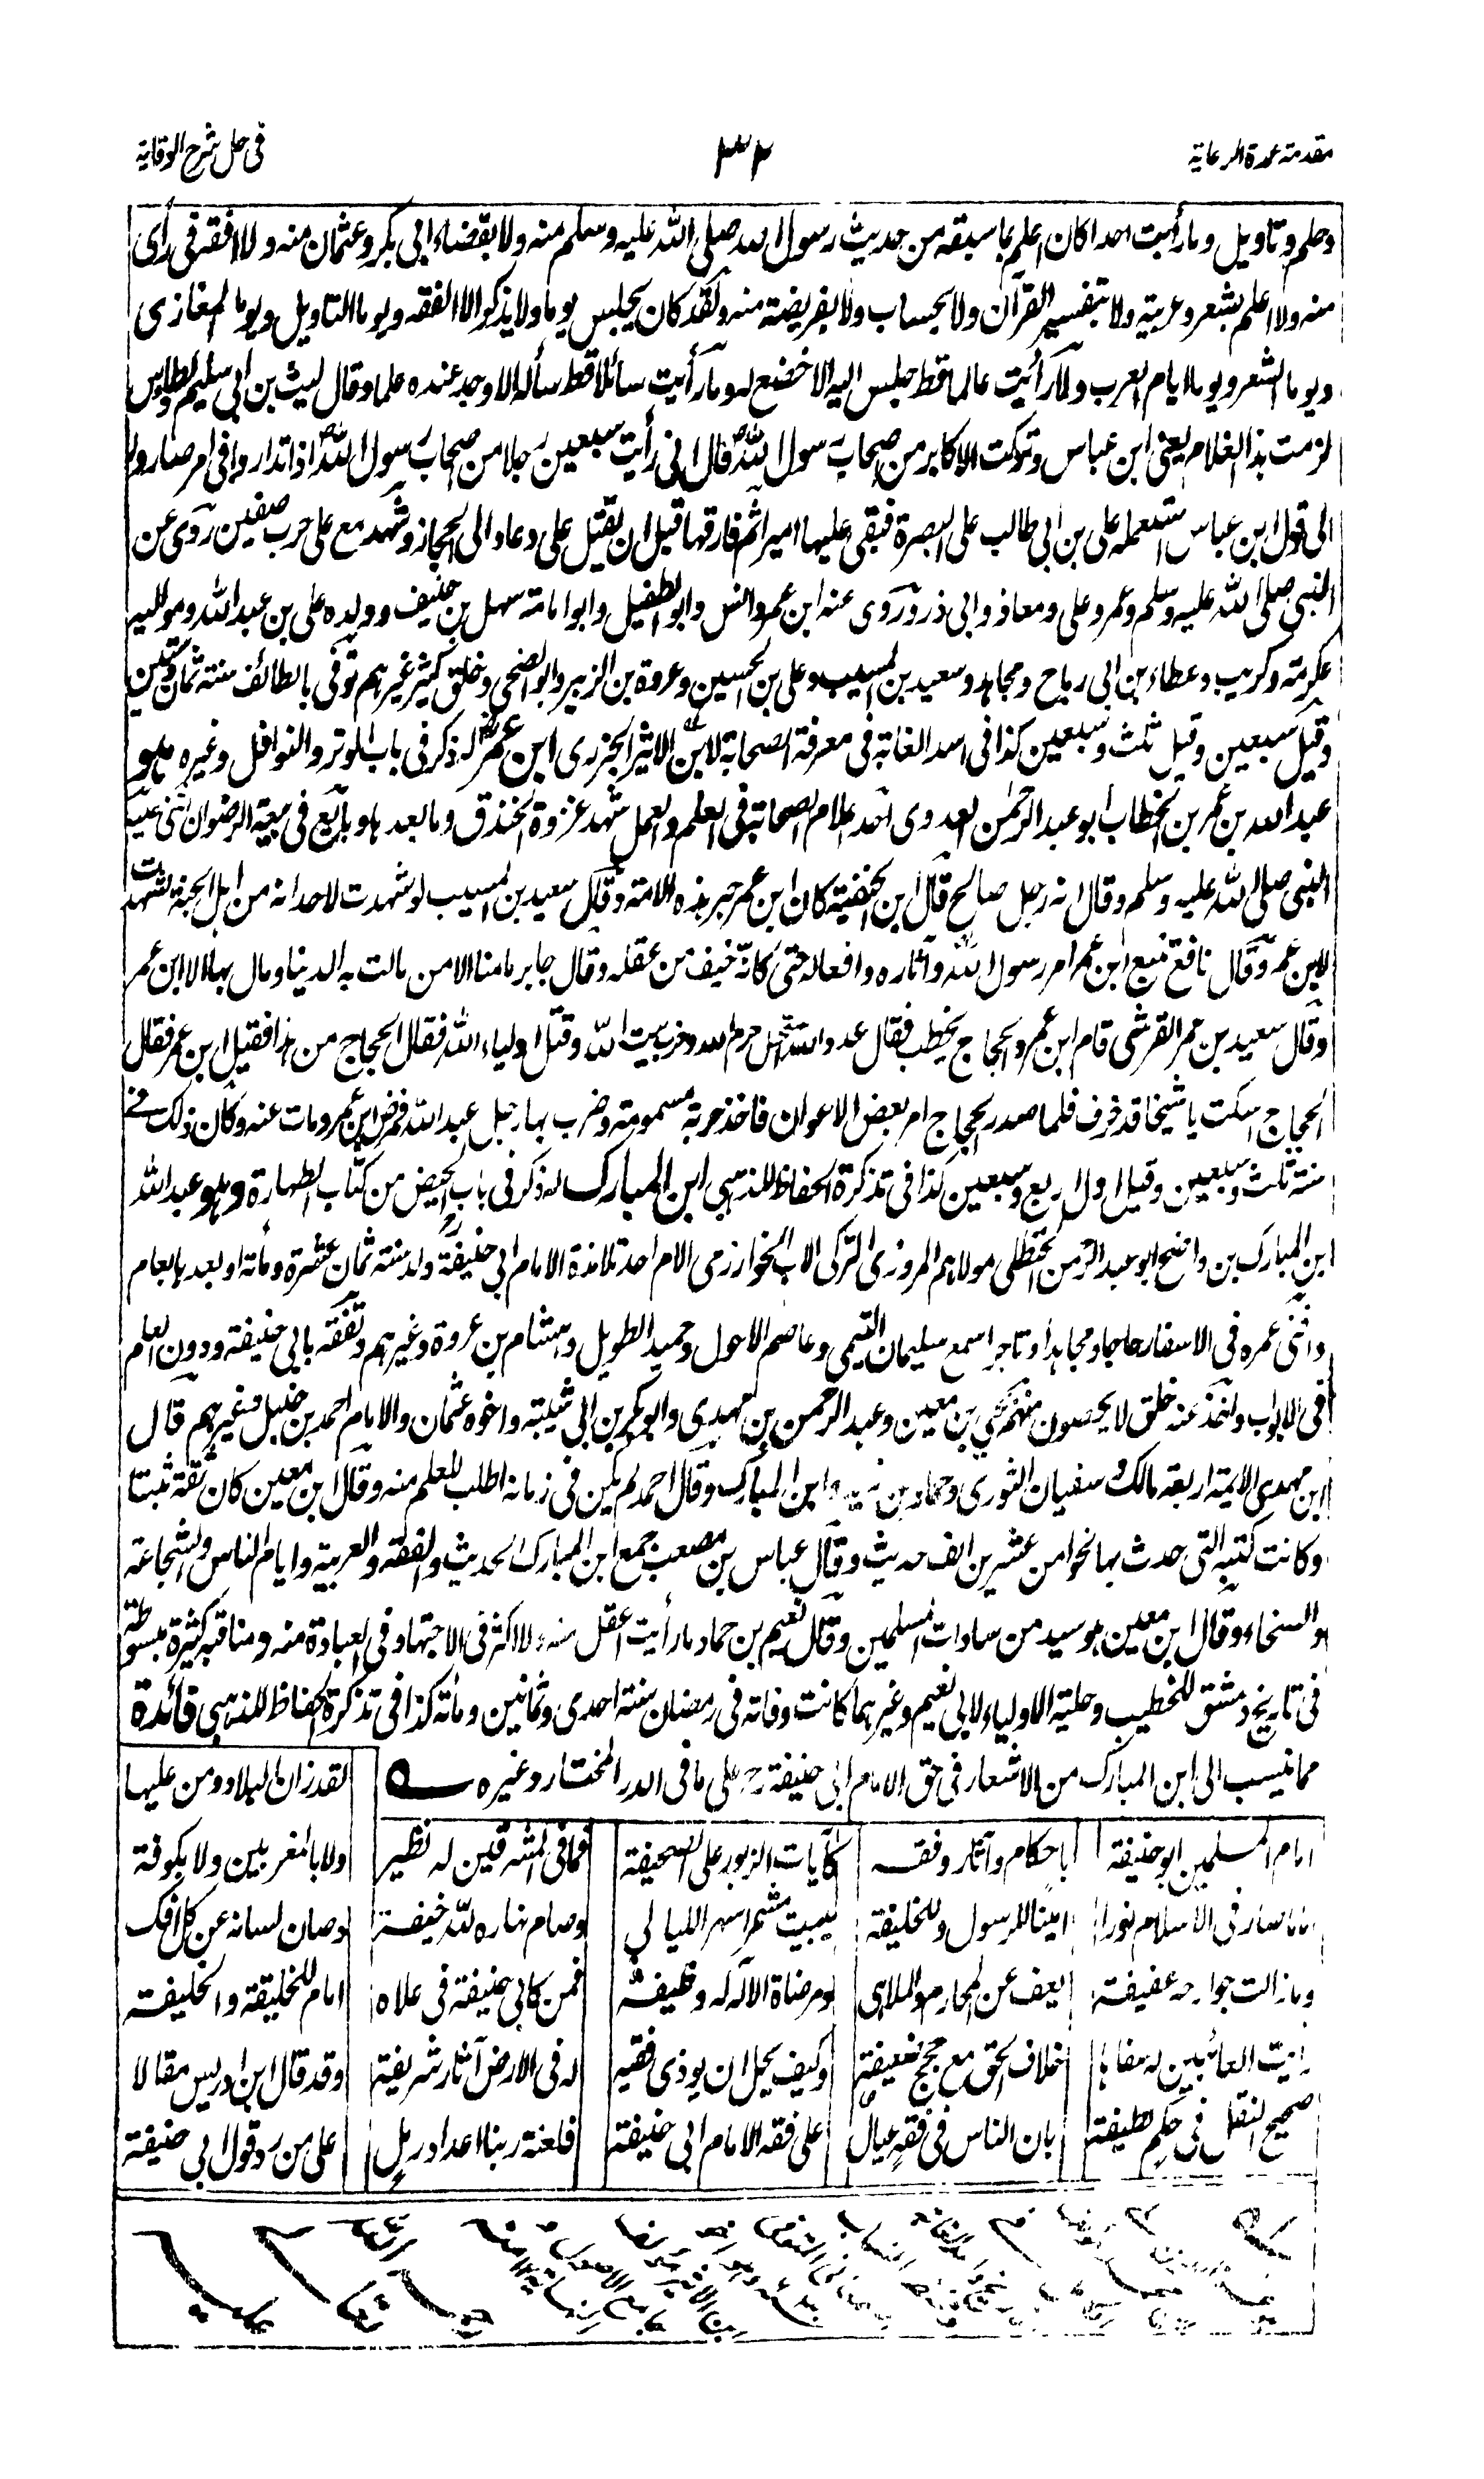 مقدمة عمدة الرعاية
٣٢
في حل شرح الوقاية
وحلم وتاويل وما رأيت احدا كان اعلم بما سبقه من حديث رسول الله صلى الله عليه وسلم منه ولا بقضاء ابي بكر وعثمان منه ولا افقه في رأى
منه ولا اعلم بشعر وعربية ولا بتفسير القرآن ولا بحساب ولا بفريضة منه ولقد كان يجلس يوما ولا يذكر الا الفقه ويوما التاويل ويوما المغازى
ويوما الشعر ويوما ايام العرب ولا رأيت عالما قط جلس اليه الا خضع له وما رأيت سائلا قط سأله الا وجد عنده علما وقال ليث بن ابي سليم لطاوس
لزمت هذا الغلام يعنى ابن عباس وتركت الاكابر من اصحاب رسول الله فقال انى رأيت سبعين رجلا من اصحاب رسول الله اذا تدارؤا في امر صاروا
الى قول ابن عباس استعمله على بن ابي طالب على البصرة فبقى عليها اميرا ثم فارقها قبل ان يقتل على وعاد الى الحجاز وشهد مع على حرب صفين روى عن
النبى صلى الله عليه وسلم وعمر وعلى ومعاذ وابى ذر وروى عنه ابن عمر وانس وابو الطفيل وابو امامة سهل بن حنيف وولده على بن عبد الله ومواليه
عكرمة وكريب وعطاء بن ابى رباح ومجاهد وسعيد بن المسيب وعلى بن الحسين وعروة بن الزبير وابو الضحى وخلق كثير غيرهم توفى بالطائف سنة ثمان وستين
وقيل سبعين وقيل ثلث وسبعين كذا فى اسد الغابة فى معرفة الصحابة لابن الاثير الجزرى ابن عمر له ذكر فى باب الوتر والنوافل وغيره هو
عبد الله بن عمر بن الخطاب ابو عبد الرحمن العدوى احد اعلام الصحابة فى العلم والعمل شهد غزوة الخندق وما بعدها وبايع فى بيعة الرضوان اثنى عليه
النبى صلى الله عليه وسلم وقال انه رجل صالح قال ابن الحنفية كان ابن عمر حبر هذه الامة وقال سعيد بن المسيب لو شهدت لاحد انه من اهل الجنة لشهدت
لابن عمر وقال نافع تتبع ابن عمر امر رسول الله وآثاره وافعاله حتى كانه خيف من عقله وقال جابر ما منا الا من مالت به الدنيا ومال بها الا ابن عمر
وقال سعيد بن عمر القرشى قام ابن عمر والحجاج يخطب فقال عدو الله استحل حرم الله وخرب بيت الله وقتل اولياء الله فقال الحجاج من هذا فقيل ابن عمر فقال
الحجاج اسكت يا شيخا قد خرف فلما صدر الحجاج امر بعض الاعوان فاخذ حربة مسمومة وضرب بها رجل عبد الله فمرض ابن عمر ومات عنه وكان ذلك فى
سنة ثلث وسبعين وقيل اول اربع وسبعين كذا فى تذكرة الحفاظ للذهبى ابن المبارك له ذكر فى باب الحيض من كتاب الطهارة وهو عبد الله
ابن المبارك بن واضح ابو عبد الرحمن الحنظلى مولاهم المروزى التركى الاب الخوارزمى الام احد تلامذة الامام ابى حنيفة ولد سنة ثمان عشرة ومائة او بعدها بعام
وافنى عمره فى الاسفار حاجا ومجاهدا وتاجرا سمع سليمان التيمى وعاصم الاحول وحميد الطويل وهشام بن عروة وغيرهم وتفقه بابى حنيفة ودون العلم
فى الابواب واخذ عنه خلق لا يحصون منهم يحيى بن معين وعبد الرحمن بن مهدى وابو بكر بن ابى شيبة واخوه عثمان والامام احمد بن حنبل وغيرهم قال
ابن مهدى الائمة اربعة مالك وسفيان الثورى وحماد بن زيد وابن المبارك وقال احمد لم يكن فى زمانه اطلب للعلم منه وقال ابن معين كان ثقة ثبتا
وكانت كتبه التى حدث بها نحوا من عشرين الف حديث وقال عباس بن مصعب جمع ابن المبارك الحديث والفقه والعربية وايام الناس والشجاعة
والسخاء وقال ابن معين هو سيد من سادات المسلمين وقال نعيم بن حماد ما رأيت اعقل منه ولا اكثر فى الاجتهاد فى العبادة منه ومناقبه كثيرة مبسوطة
فى تاريخ دمشق للخطيب وحلية الاولياء لابى نعيم وغيرهما كانت وفاته فى رمضان سنة احدى وثمانين ومائة كذا فى تذكرة الحفاظ للذهبى فائدة
مما ينسب الى ابن المبارك من الاشعار فى حق الامام ابى حنيفة رح على ما فى الدر المختار وغيره ه لقد زان البلاد ومن عليها
امام المسلمين ابو حنيفة باحكام وآثار وفقه كآيات الزبور على الصحيفة فما فى المشرقين له نظير ولا بالمغربين ولا بكوفة
اماما صار فى الاسلام نورا امينا للرسول وللخليفة يبيت مشمرا سهر الليالى وصام نهاره لله خيفة وصان لسانه عن كل افك
وما زالت جوارحه عفيفة يعف عن المحارم والملاهى ومرضاة الاله له وظيفة فمن كابى حنيفة فى علاه امام للخليقة والخليفة
رايت العائبين له سفاها خلاف الحق مع حجج ضعيفة وكيف يحل ان يوذى فقيه له فى الارض آثار شريفة وقد قال ابن ادريس مقالا
صحيح النقل فى حكم لطيفة بان الناس فى فقه عيال على فقه الامام ابى حنيفة فلعنة ربنا اعداد رمل على من رد قول ابى حنيفة